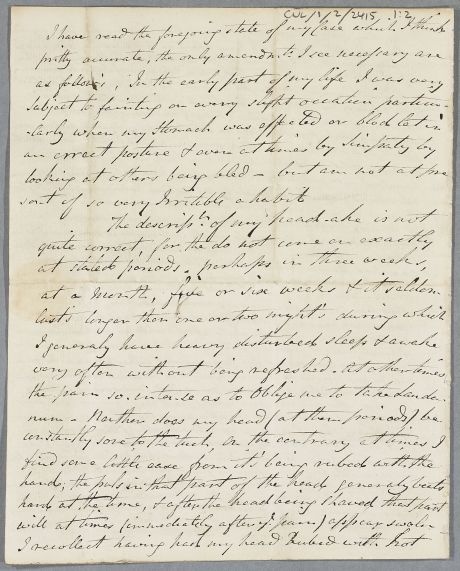 CUL/1/2/2415 1:2
I have read the foregoing state of my Case which I think
pritty accurate, the only amendmts. I see necessary are
as follows, In the early part of my life I was very
Subject to fainting on every slight occation particu-
-larly when my Stomach was affected or blood let in
an errect posture & even at times by Simpathy by
looking at others being bled - but am not at pre
sent of so very Irritible a habit
The descripn. of my head-ake is not
quite correct, for the do not come on exactly
at stated periods, perhaps in three weeks,
at a Month, five or six weeks & it seldom
last's longer then one or two night's during which
I generaly have heavy disturbed sleep & awake
very often without being refreshed - at other times
the pain so intense as to Oblige me to take Lauda-
num - Neither does my head (at them periods) be
constantly sore to the tuch, on the contrary at times I
find some little ease from it's being rubed with the
hands, the puls in that part of the head generaly beats
hard at the time, & after the head being Shaved that part
will at times (immediately after ye. pain) appear swolen
I recollect having had my head Rubed with Hot